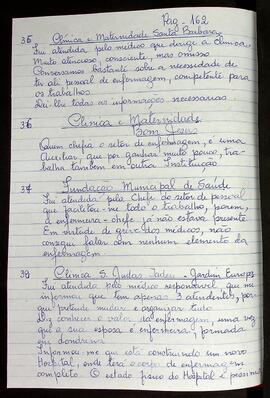 Pág. 162
35 Clínica e Maternidade Santa Barbara
Fui atendida pelo médico que dirige a Clínica
Muito atencioso, consciente, mas omisso
Conversamos bastante sobre a necessidade de
ter ali pessoal de enfermagem, competente para
os trabalhos
Dei-lhe todas as informações necessarias
36 Clinica e Maternidade
Bom Jesus
Quem chefia o setor de enfermagem, é uma
Auxiliar, que por ganhar muito pouco, tra-
balha também em outra Instituição
37 Fundação Municipal de Saúde
Fui atendida pelo Chefe do setor de pessoal
que facilitou-me todo o trabalho, porem,
a enfermeira-chefe já não estava presente
Em virtude de greve dos médicos, não
consegui falar com nenhum elemento da
enfermagem
38 Clinica S. Judas Tadeu - Jardim Europa
Fui atendida pelo médico responsável, que me
informou que tem apenas 3 atendentes, por
que pretende mudar e organizar tudo
Diz conhecer o valor da enfermagem, uma vez
que a sua esposa é enfermeira, formada
em Londrina
Informou-me que está construindo um novo
Hospital, onde terá o corpo de enfermagem
completo. O estado físico do Hospital é péssimo